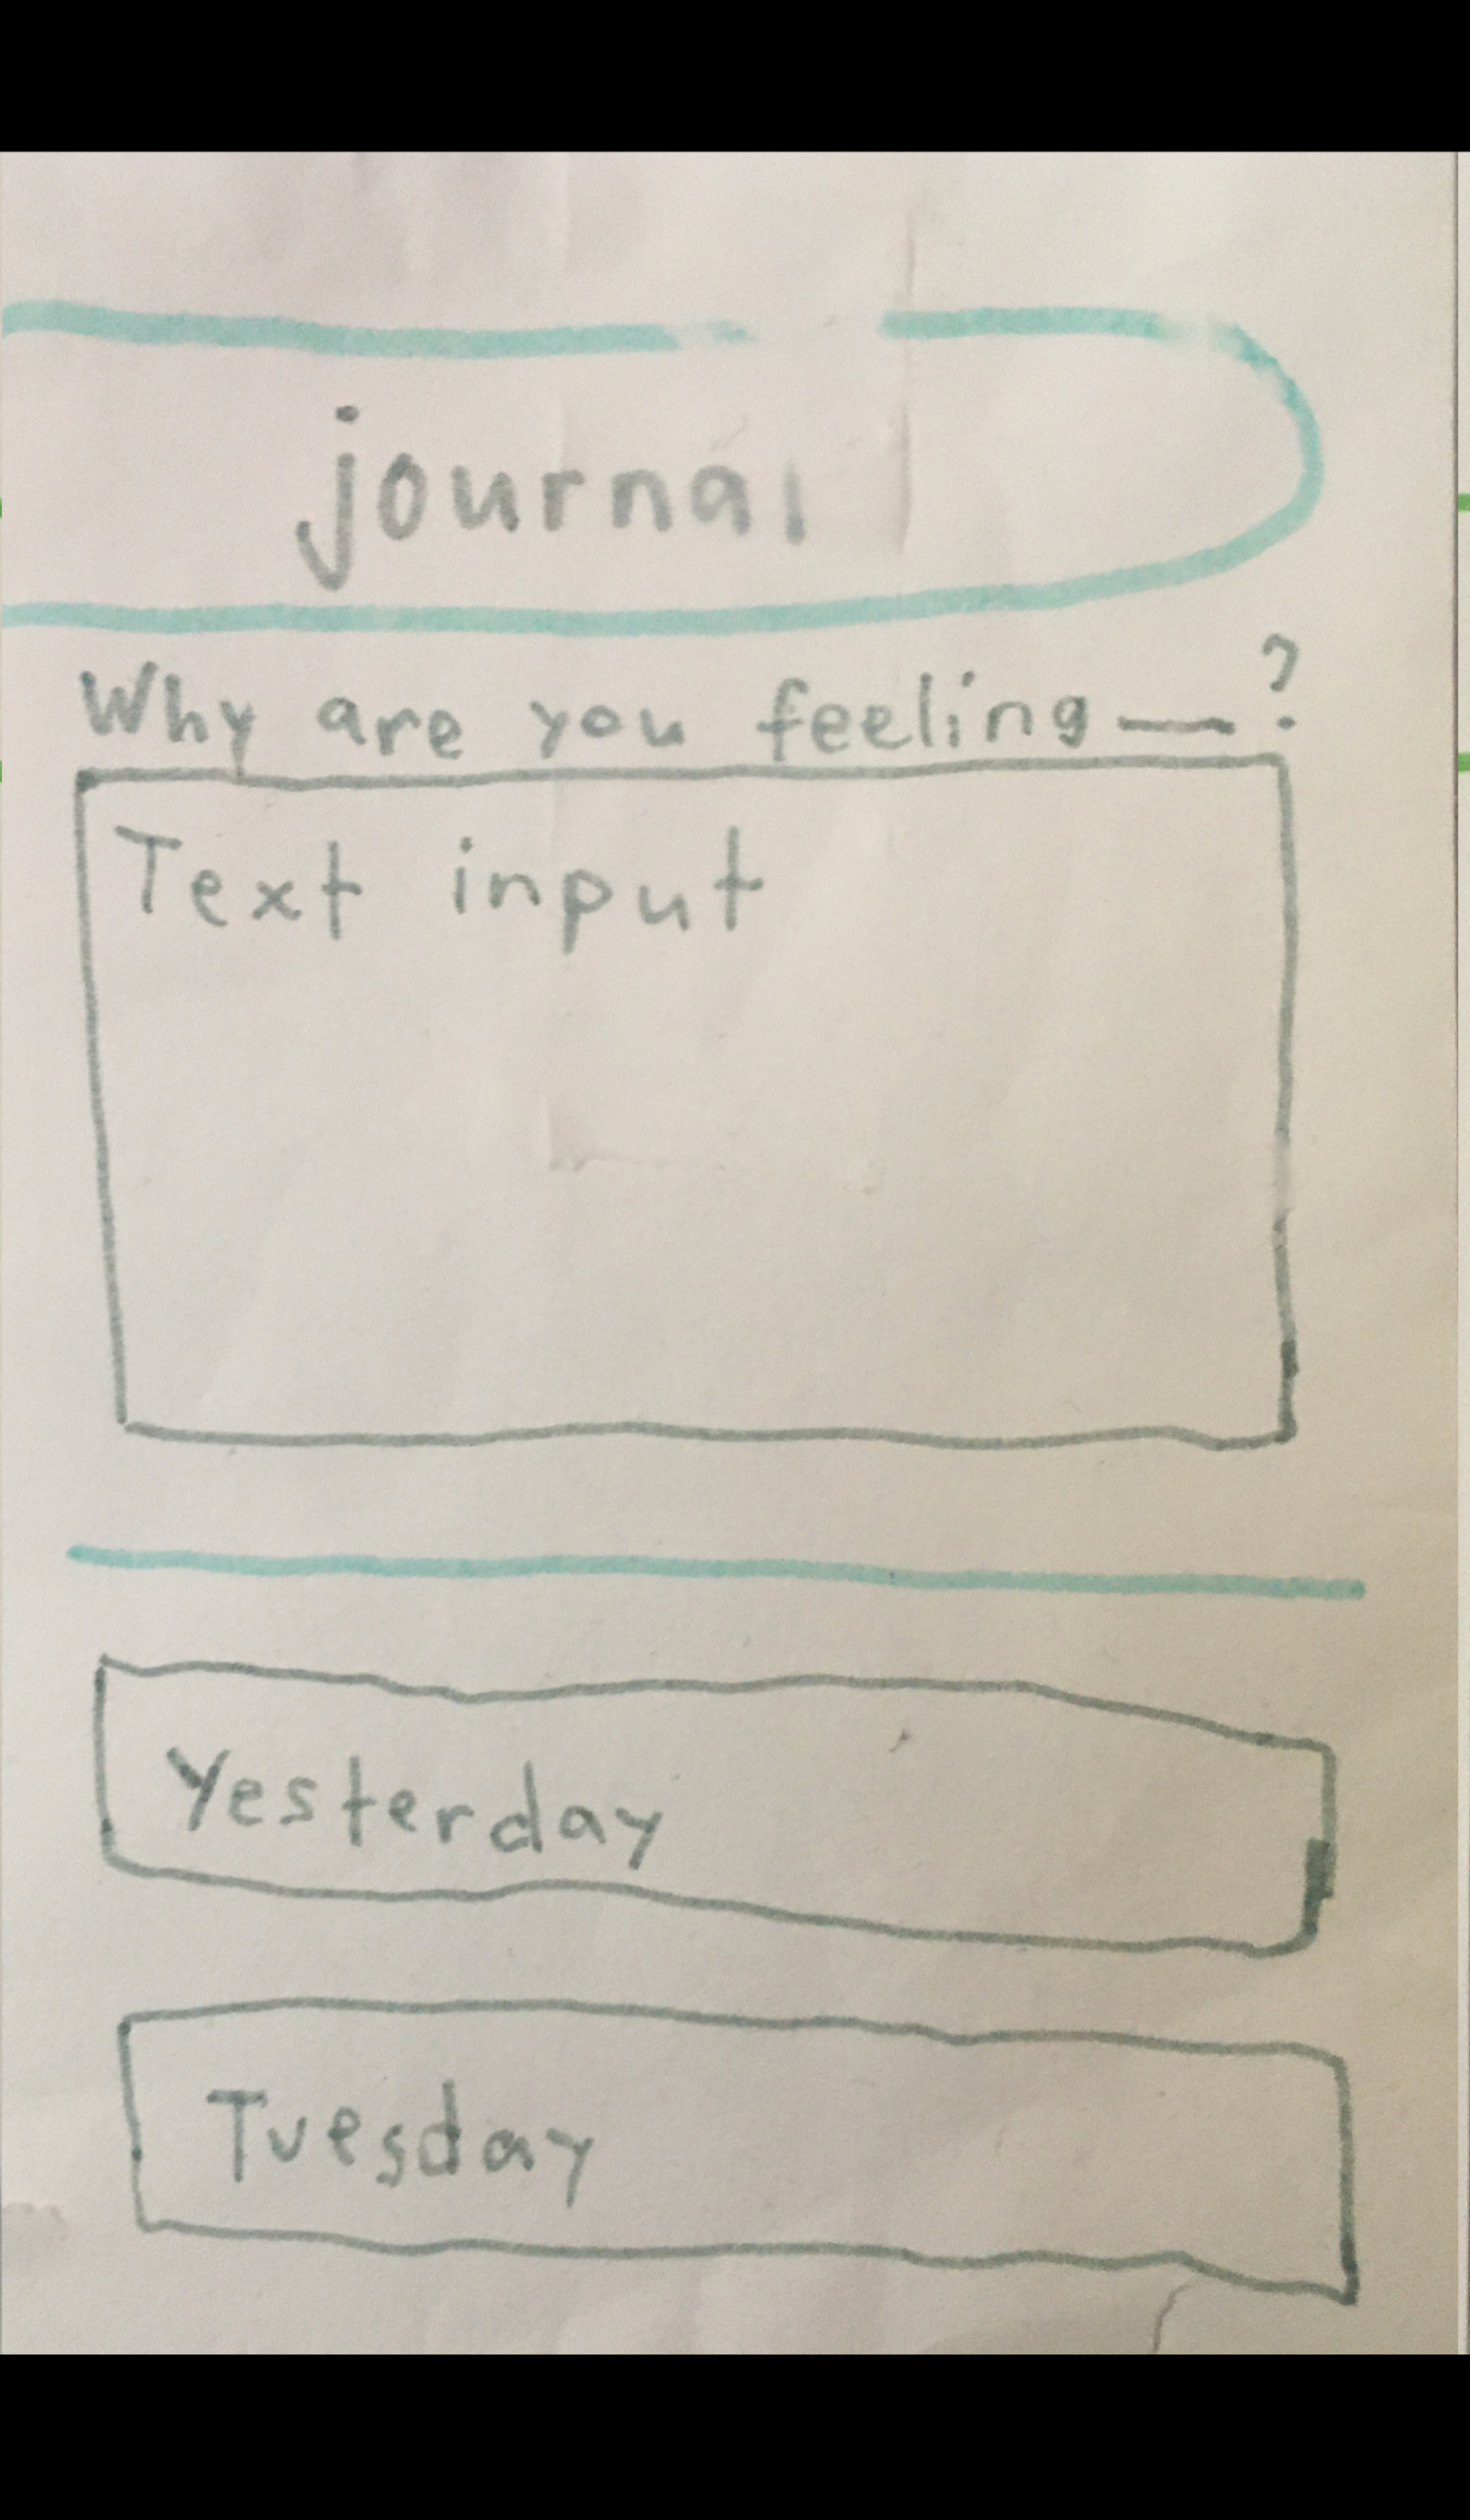 journal
Why are you feeling __?
Text input
Yesterday
Tuesday